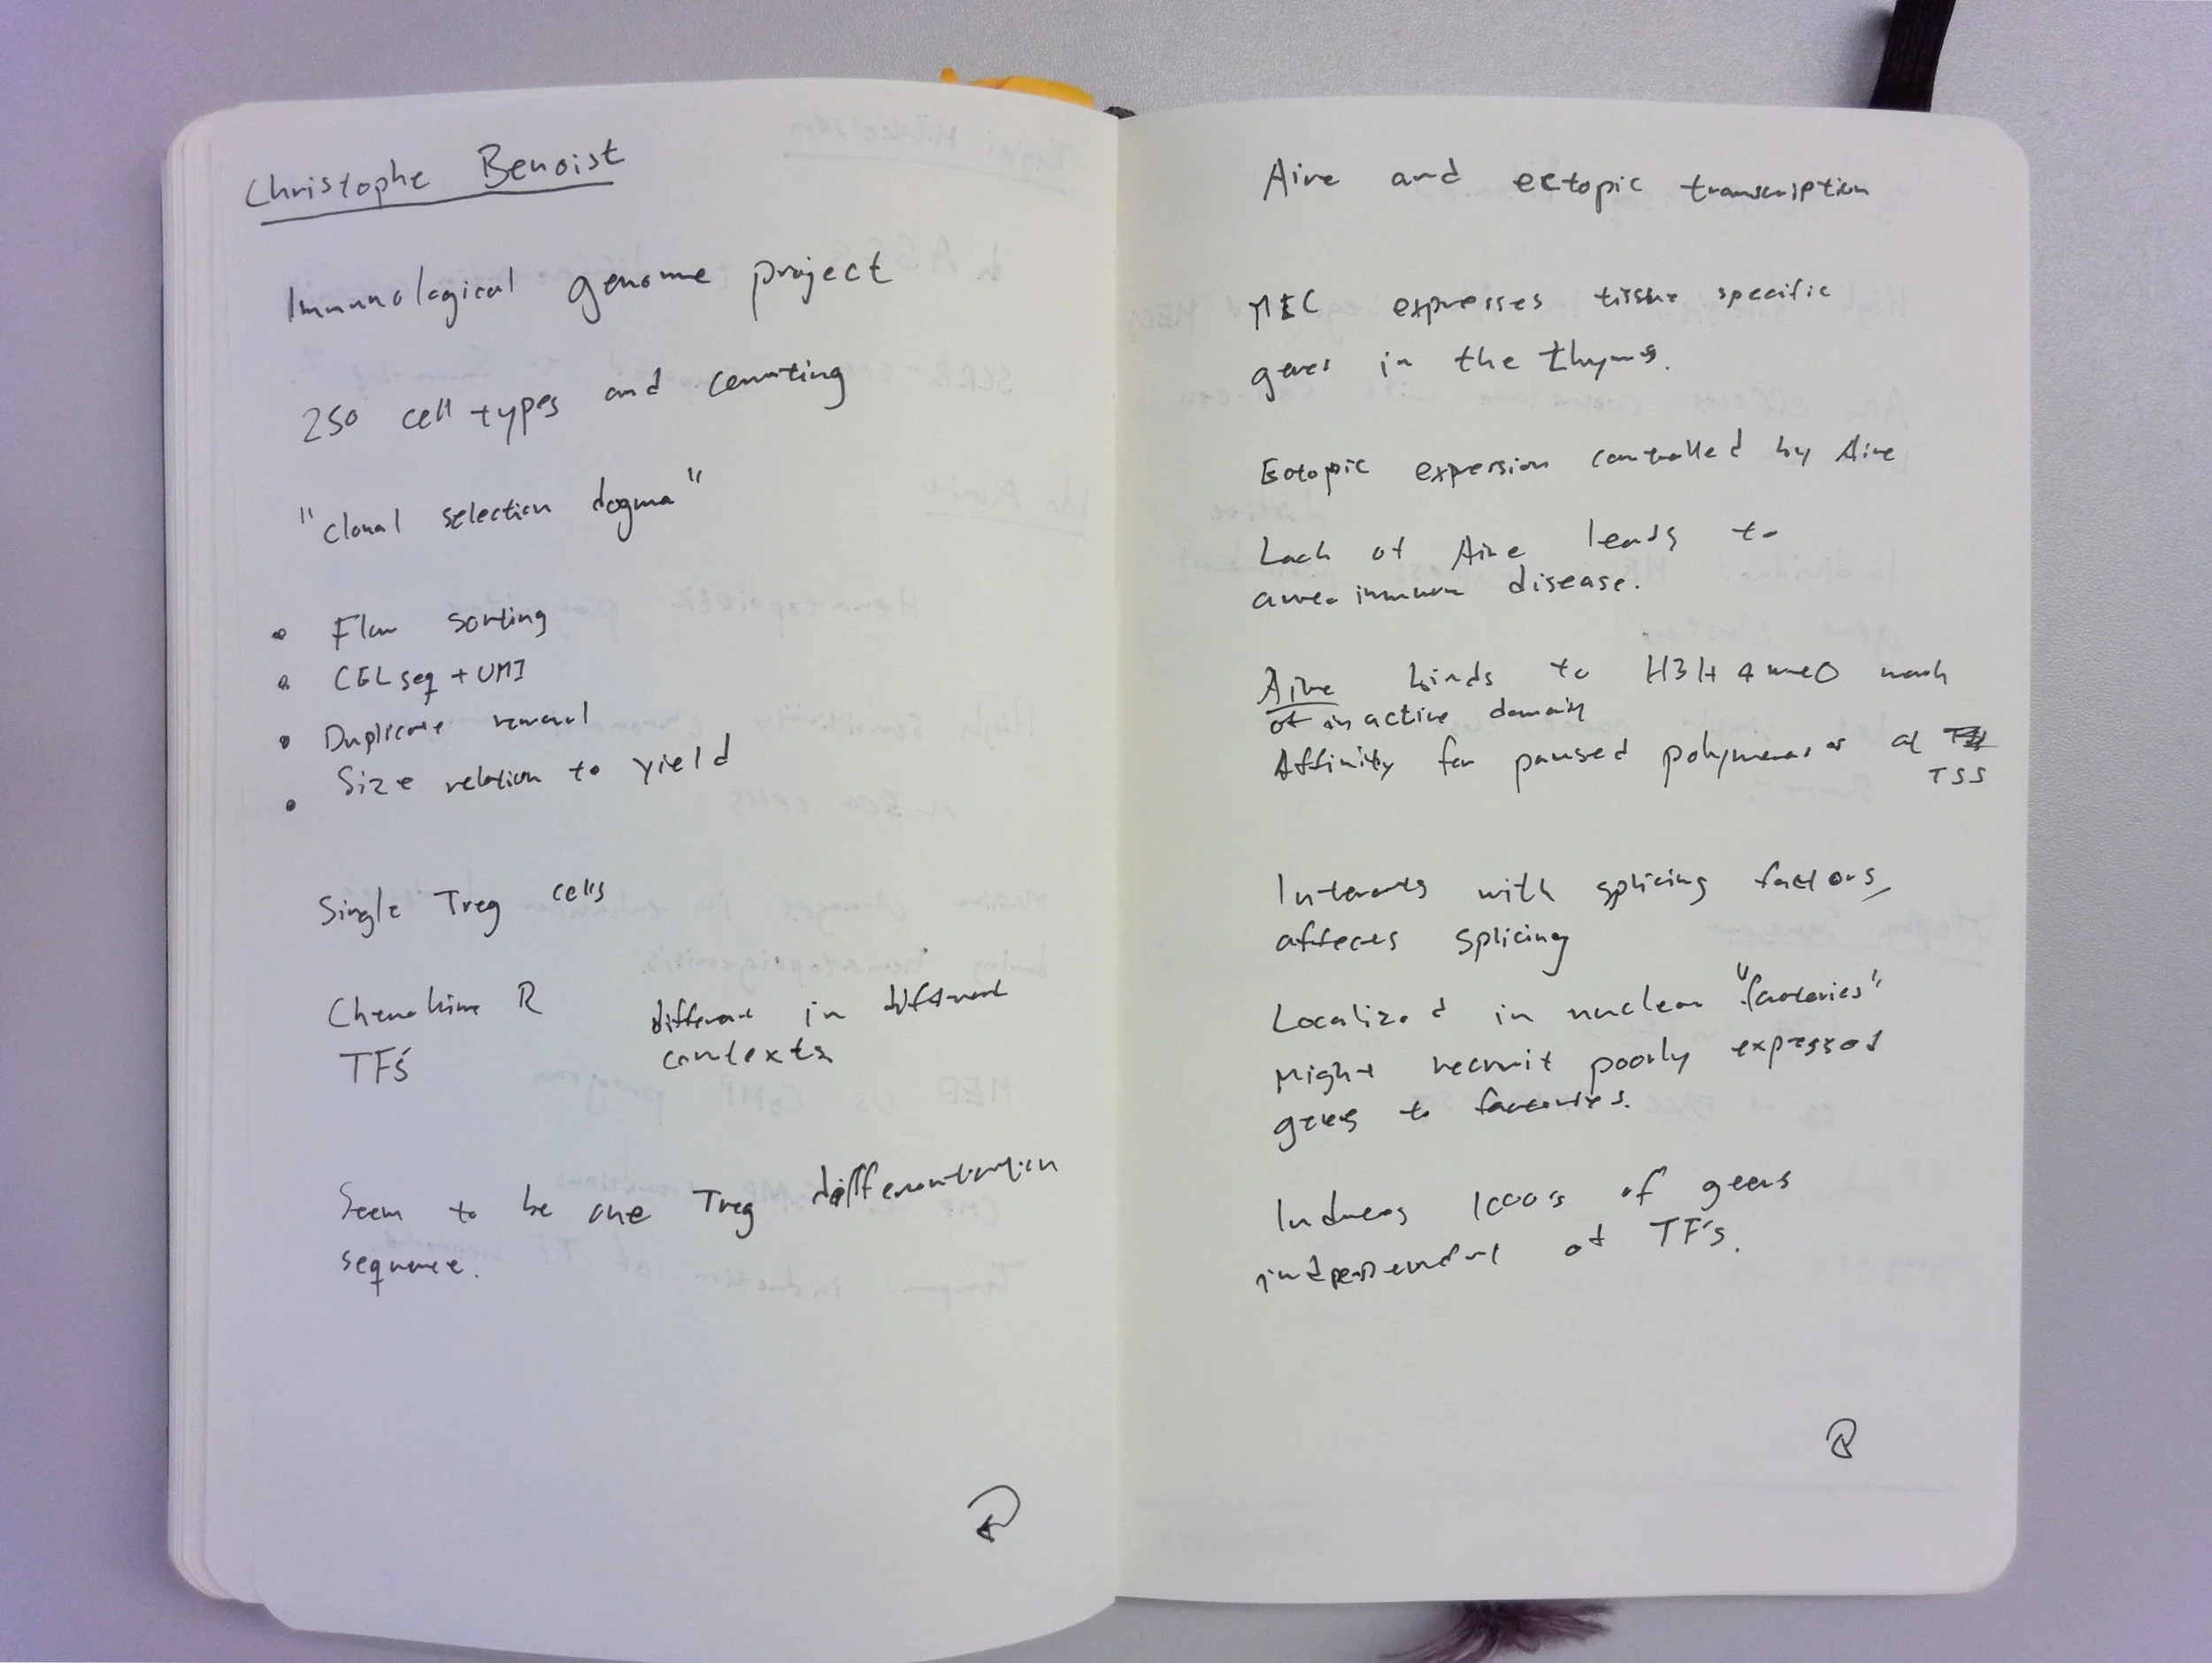 Christophe Benoist
Immunological genome project
250 cell types and counting
"Clonal selection dogma"
• Flow sorting
• CELseq + UMI
• Duplicate removal
• Size relation to yield
Single Treg cells
Chemokine R different in different
TF's contexts
Seem to be one Treg differentiation
sequence.
Aire and ectopic transcription
MEC expresses tissue specific
genes in the thymus.
Ectopic expression controlled by Aire
Lack of Aire leads to
autoimmune disease.
Aire binds to H3K4me0 mark
of inactive domain
Affinity for paused polymerase at
TSS
Interacts with splicing factors,
affects splicing
Localized in nuclear "factories"
Might recruit poorly expressed
genes to factories.
Induces 1000's of geens
independent of TF's.